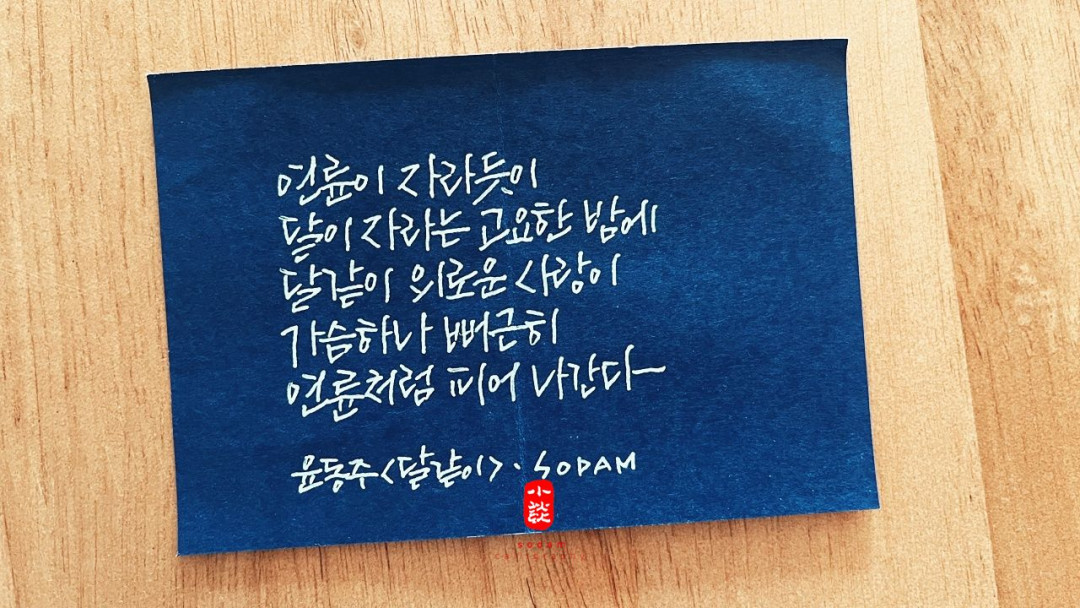 연륜이 자라듯이
달이 자라는 고요한 밤에
달같이 외로운 사랑이
가슴하나 뻐근히
연륜처럼 피어 나간다~
윤동주<달같이>. SODAM
小
談
SODAM